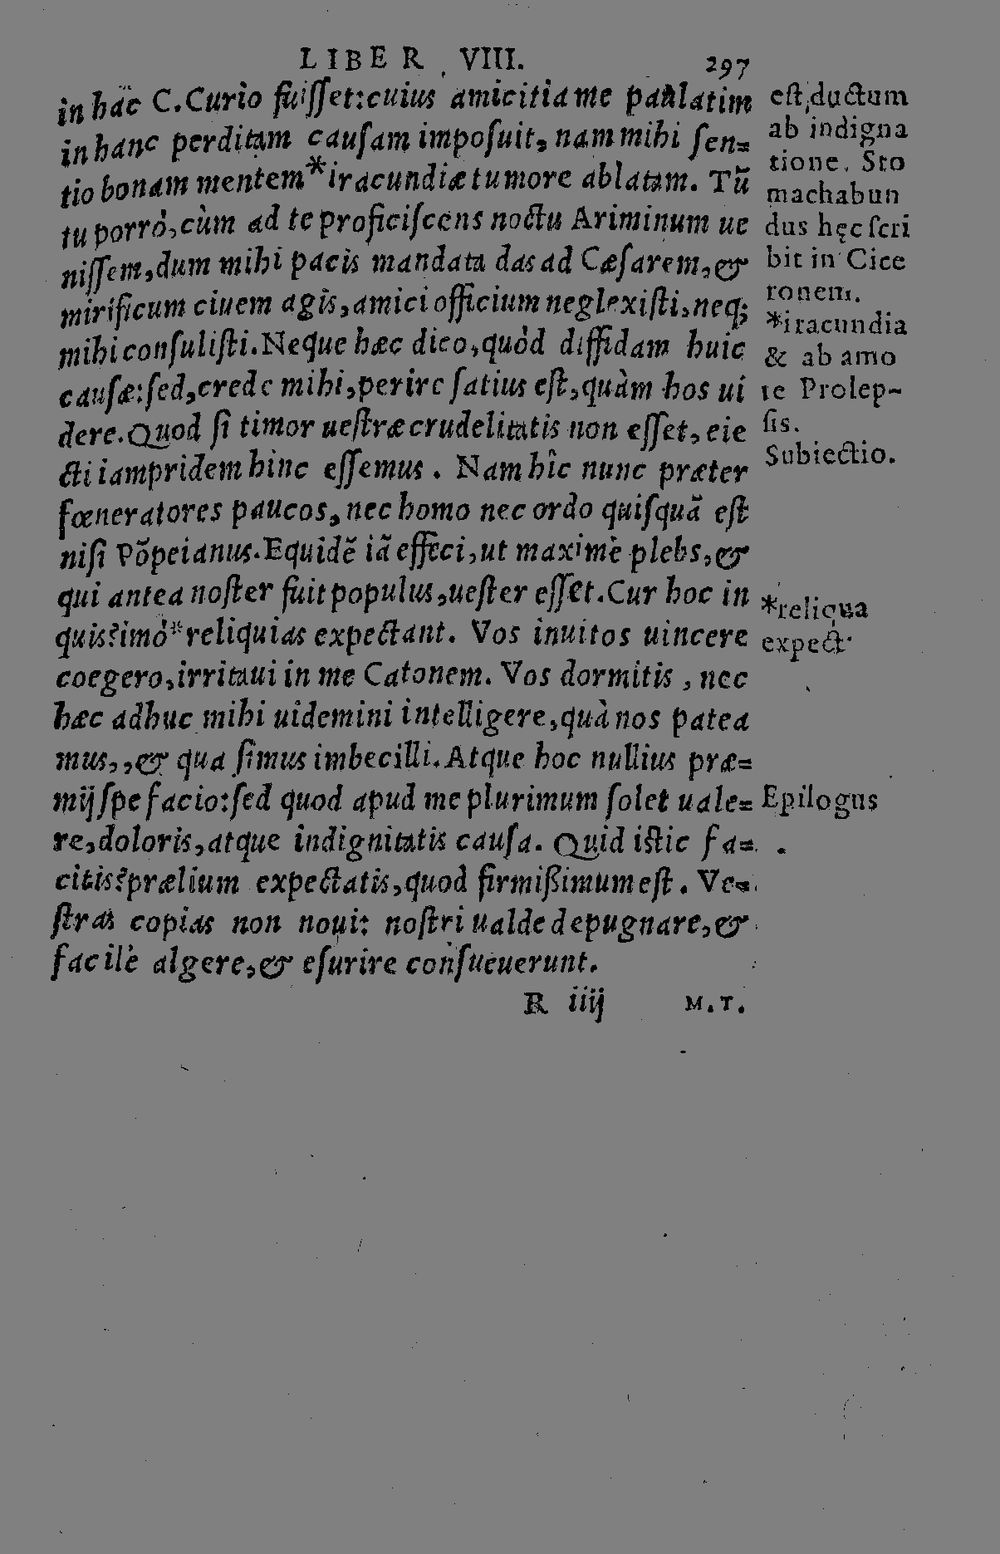 LIBER VIII. 297
in hāc C. Curio fuisset: cuius amicitia me paulatim
in hanc perditam causam imposuit, nam mihi sen=
tio bonam mentem *iracundiæ tumore ablatam. Tū
tu porrò, cùm ad te proficiscens noctu Ariminum ue
nissem, dum mihi pacis mandata das ad Cæsarem, &
mirificum ciuem agis, amici officium neglexisti, neq;
mihi consulisti. Neque hæc dico, quòd diffidam huic
causæ: sed, crede mihi, perire satius est, quàm hos ui
dere. Quod si timor uestræ crudelitatis non esset, eie
cti iampridem hinc essemus. Nam hîc nunc præter
fœneratores paucos, nec homo nec ordo quisquā est
nisi Pōpeianus. Equidē iā effeci, ut maximè plebs, &
qui antea noster fuit populus, uester esset. Cur hoc in
quis? imò *reliquias expectant. Vos inuitos uincere
coegero, irritaui in me Catonem. Vos dormitis, nec
hæc adhuc mihi uidemini intelligere, quà nos patea
mus,, & qua simus imbecilli. Atque hoc nullius præ=
mij spe facio: sed quod apud me plurimum solet uale=
re, doloris, atque indignitatis causa. Quid istic fa=
citis? prælium expectatis, quod firmißimum est. Ve=
stras copias non noui: nostri ualde depugnare, &
facilè algere, & esurire consueuerunt.
R iiij M. T.
est, ductum
ab indigna
tione. Sto
machabun
dus hęc scri
bit in Cice
ronem.
*iracundia
& ab amo
re Prolep-
sis.
Subiectio.
*reliqua
expect.
Epilogus